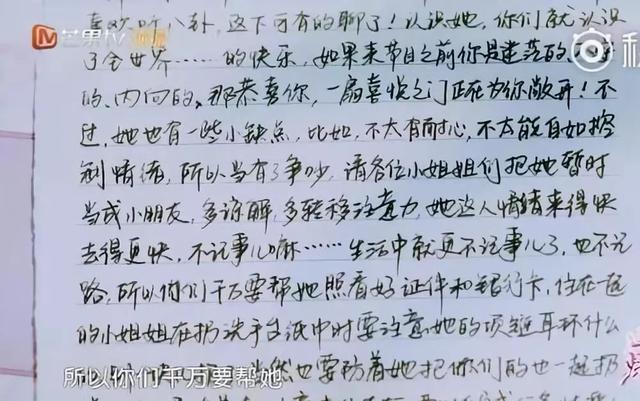 喜欢听八卦，这下可有的聊了！认识她，你们就认识
了全世界……的快乐，如果来节目之前你是迷茫的、
的、内向的，那恭喜你，一扇喜悦之门正在为你敞开！不
过，她也有一些小缺点，比如，不太有耐心，不太能自如控
制情绪，所以当有了争吵，请各位小姐姐们把她暂时
当成小朋友，多谅解，多转移注意力，她这人情绪来得快
去得更快，不记事儿嘛……生活中就更不记事儿了，也不记
路，所以你们千万要帮她照看好证件和银行卡，住在一起
的小姐姐在扔洗手台纸巾时要注意她的项链耳环什么
当然也要防着她把你们的也一起扔
所以你们千万要帮她
芒果TV